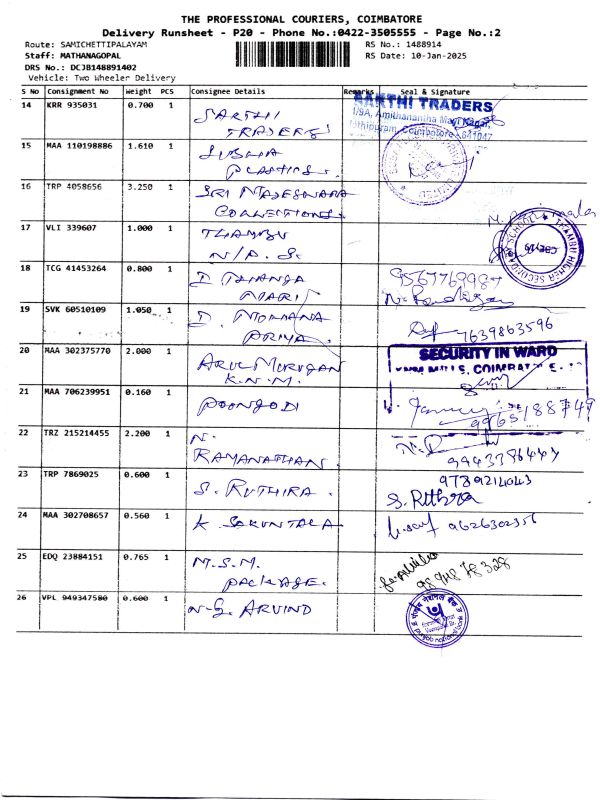 THE PROFESSIONAL COURIERS, COIMBATORE
Delivery Runsheet - P20 - Phone No.:0422-3505555 - Page No.:2
Route: SAMICHETTIPALAYAM RS No.: 1488914
Staff: MATHANAGOPAL RS Date: 10-Jan-2025
DRS No.: DCJB148891402
Vehicle: Two Wheeler Delivery
S No Consignment No Weight PCS Consignee Details Remarks Seal & Signature
14 KRR 935031 0.700 1 SARTHI
TRADERS
SARTHI TRADERS
1/9A, Amithanantha Nagar,
Coimbatore - 641047
15 MAA 110198886 1.610 1
PLASTICS.
16 TRP 4058656 3.250 1 SRI
CONVENTIONS.
17 VLI 339607 1.000 1 THAMBU
N/P. S.
THAMBU HIGHER SECONDARY SCHOOL
CBE-19
18 TCG 41453264 0.800 1 D THANGA
MARI
9567769987
19 SVK 60510109 1.050 1 D. MOHANA
PRIYA.
7639863596
20 MAA 302375770 2.000 1 ARUL MURUGAN
K.N.M.
SECURITY IN WARD
21 MAA 706239951 0.160 1 POONGODI
22 TRZ 215214455 2.200 1 N.
RAMANATHAN.
23 TRP 7869025 0.600 1 S. RUTHIRA.
9789214043
S. Ruthra
24 MAA 302708657 0.560 1 K SAKUNTALA
9626302356
25 EDQ 23884151 0.765 1 M.S.M.
PACKAGE.
26 VPL 949347580 0.600 1 N.G. ARVIND
punjab national bank